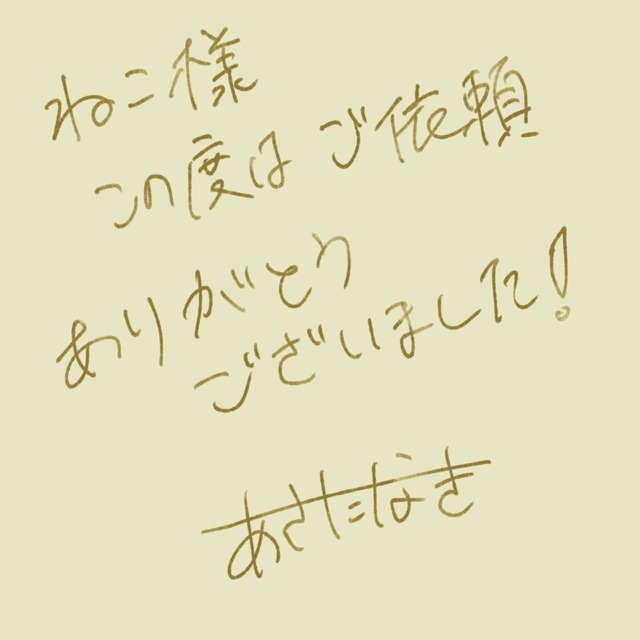 ねこ様
この度は ご依頼
ありがとう
ございました!
あさたなき